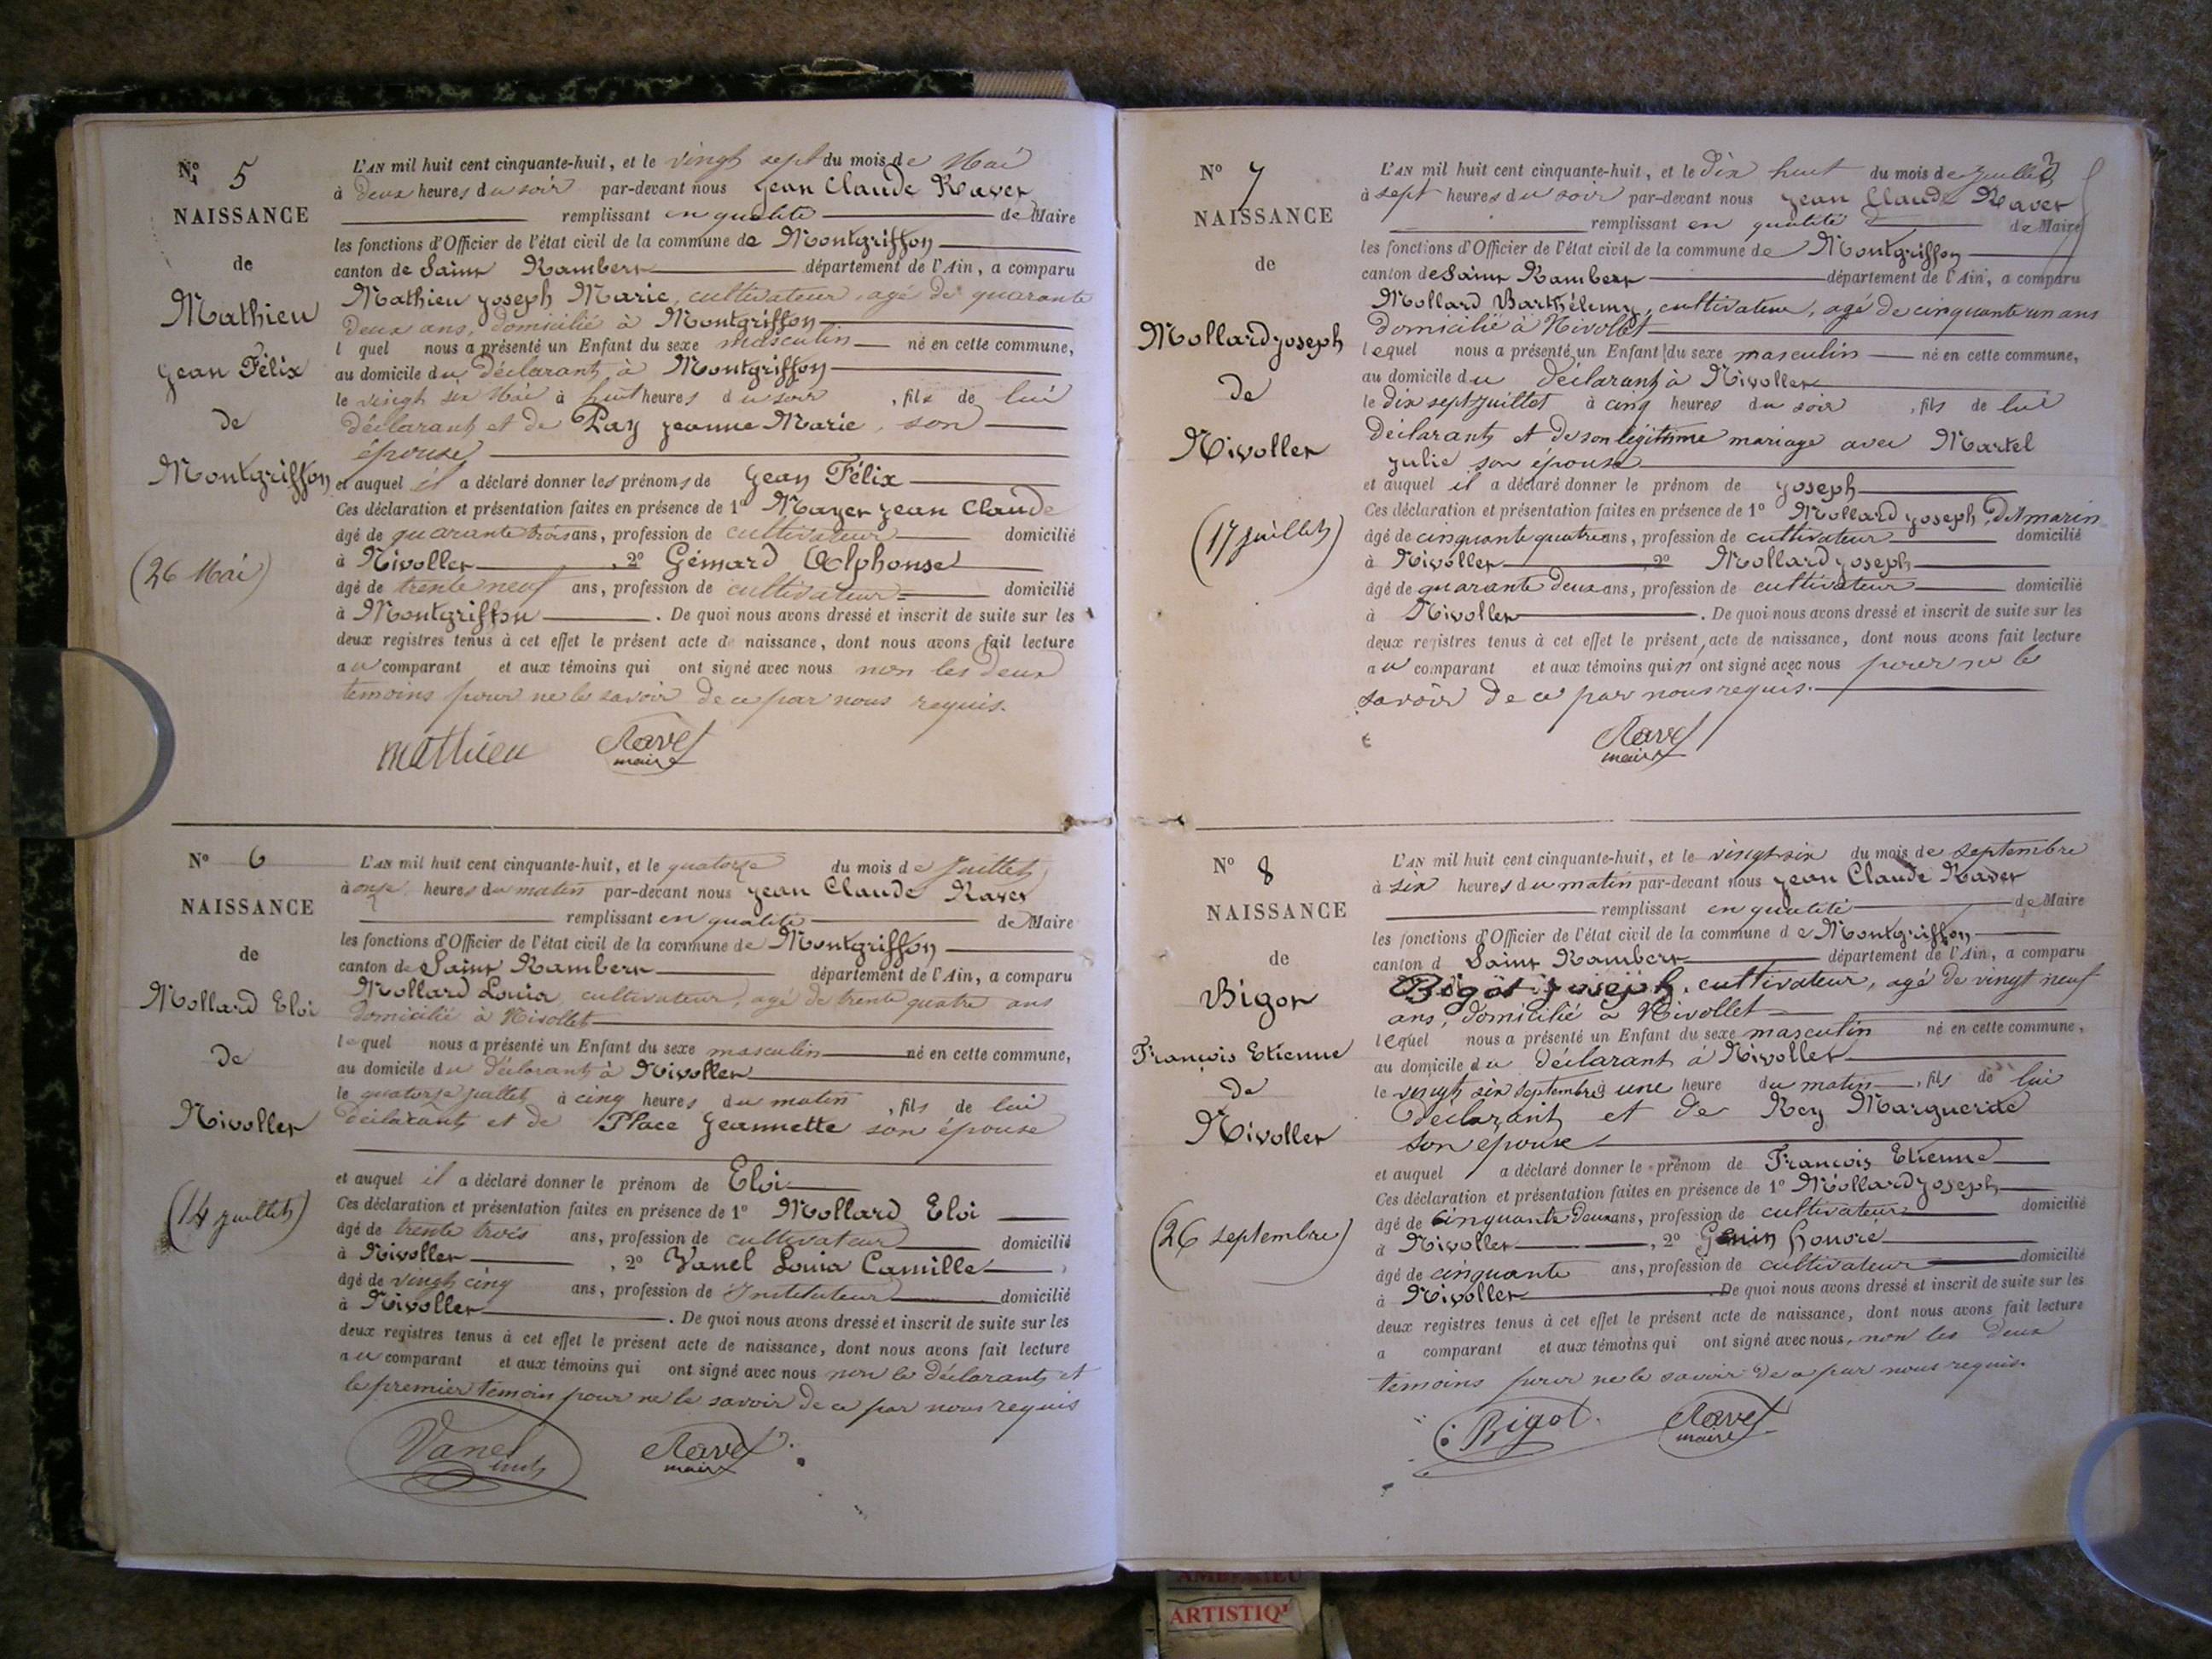 N° 5
NAISSANCE
de
Mathieu
Jean Félix
de
Montgriffon
(26 Mai)
L'AN mil huit cent cinquante-huit, et le vingt sept du mois de Mai
à deux heures du soir par-devant nous Jean Claude Ravet
remplissant en qualité de Maire
les fonctions d'Officier de l'état civil de la commune de Montgriffon
canton de Saint Rambert département de l'Ain, a comparu
Mathieu Joseph Marie, cultivateur, agé de quarante
deux ans, domicilié à Montgriffon
l quel nous a présenté un Enfant du sexe masculin né en cette commune,
au domicile du déclarant à Montgriffon
le vingt six Mai à huit heures du soir, fils de lui
déclarant et de Pay Jeanne Marie, son
épouse
et auquel il a déclaré donner les prénoms de Jean Félix
Ces déclaration et présentation faites en présence de 1° Mayer Jean Claude
âgé de quarante trois ans, profession de cultivateur domicilié
à Nivollet, 2° Gémard Alphonse
âgé de trente neuf ans, profession de cultivateur domicilié
à Montgriffon. De quoi nous avons dressé et inscrit de suite sur les
deux registres tenus à cet effet le présent acte de naissance, dont nous avons fait lecture
au comparant et aux témoins qui ont signé avec nous non les deux
temoins pour ne le savoir de ce par nous requis.
mathieu Ravet
maire
N° 6
NAISSANCE
de
Mollard Eloi
de
Nivollet
(14 juillet)
L'AN mil huit cent cinquante-huit, et le quatorze du mois de Juillet
à onze heures du matin par-devant nous Jean Claude Ravet
remplissant en qualité de Maire
les fonctions d'Officier de l'état civil de la commune de Montgriffon
canton de Saint Rambert département de l'Ain, a comparu
Mollard Louis, cultivateur, agé de trente quatre ans
domicilié à Nivollet
lequel nous a présenté un Enfant du sexe masculin né en cette commune,
au domicile du déclarant à Nivollet
le quatorze juillet à cinq heures du matin, fils de lui
déclarant et de Place Jeannette son épouse
et auquel il a déclaré donner le prénom de Eloi
Ces déclaration et présentation faites en présence de 1° Mollard Eloi
âgé de trente trois ans, profession de cultivateur domicilié
à Nivollet, 2° Vanel Louis Camille
âgé de vingt cinq ans, profession de Instituteur domicilié
à Nivollet. De quoi nous avons dressé et inscrit de suite sur les
deux registres tenus à cet effet le présent acte de naissance, dont nous avons fait lecture
au comparant et aux témoins qui ont signé avec nous non le déclarant et
le premier témoin pour ne le savoir de ce par nous requis
Vanel inst Ravet
maire
N° 7
NAISSANCE
de
Mollard Joseph
de
Nivollet
(17 juillet)
L'AN mil huit cent cinquante-huit, et le dix huit du mois de Juillet
à sept heures du soir par-devant nous Jean Claude Ravet
remplissant en qualité de Maire
les fonctions d'Officier de l'état civil de la commune de Montgriffon
canton de Saint Rambert département de l'Ain, a comparu
Mollard Barthélemy, cultivateur, agé de cinquante un ans
domicilié à Nivollet
lequel nous a présenté un Enfant du sexe masculin né en cette commune,
au domicile du déclarant à Nivollet
le dix sept juillet à cinq heures du soir, fils de lui
déclarant et de son légitime mariage avec Martel
Julie son épouse
et auquel il a déclaré donner le prénom de Joseph
Ces déclaration et présentation faites en présence de 1° Mollard Joseph, dit marin
âgé de cinquante quatre ans, profession de cultivateur domicilié
à Nivollet, 2° Mollard Joseph
âgé de quarante deux ans, profession de cultivateur domicilié
à Nivollet. De quoi nous avons dressé et inscrit de suite sur les
deux registres tenus à cet effet le présent acte de naissance, dont nous avons fait lecture
au comparant et aux témoins qui n ont signé avec nous pour ne le
savoir de ce par nous requis.
Ravet
maire
N° 8
NAISSANCE
de
Bigot
François Etienne
de
Nivollet
(26 septembre)
L'AN mil huit cent cinquante-huit, et le vingt six du mois de septembre
à six heures du matin par-devant nous Jean Claude Ravet
remplissant en qualité de Maire
les fonctions d'Officier de l'état civil de la commune de Montgriffon
canton d Saint Rambert département de l'Ain, a comparu
Bigot Joseph, cultivateur, agé de vingt neuf
ans, domicilié à Nivollet
lequel nous a présenté un Enfant du sexe masculin né en cette commune,
au domicile du déclarant à Nivollet
le vingt six septembre à une heure du matin, fils de lui
déclarant et de Rey Marguerite
son epouse
et auquel a déclaré donner le prénom de François Etienne
Ces déclaration et présentation faites en présence de 1° Mollard Joseph
âgé de cinquante deux ans, profession de cultivateur domicilié
à Nivollet, 2° Genin honoré
âgé de cinquante ans, profession de cultivateur domicilié
à Nivollet. De quoi nous avons dressé et inscrit de suite sur les
deux registres tenus à cet effet le présent acte de naissance, dont nous avons fait lecture
a comparant et aux témoins qui ont signé avec nous, non les deux
témoins pour ne le savoir de ce par nous requis.
Bigot Ravet
maire
ARTISTIQ